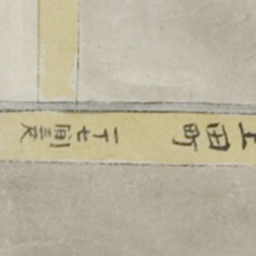 上田町
一丁七間三尺